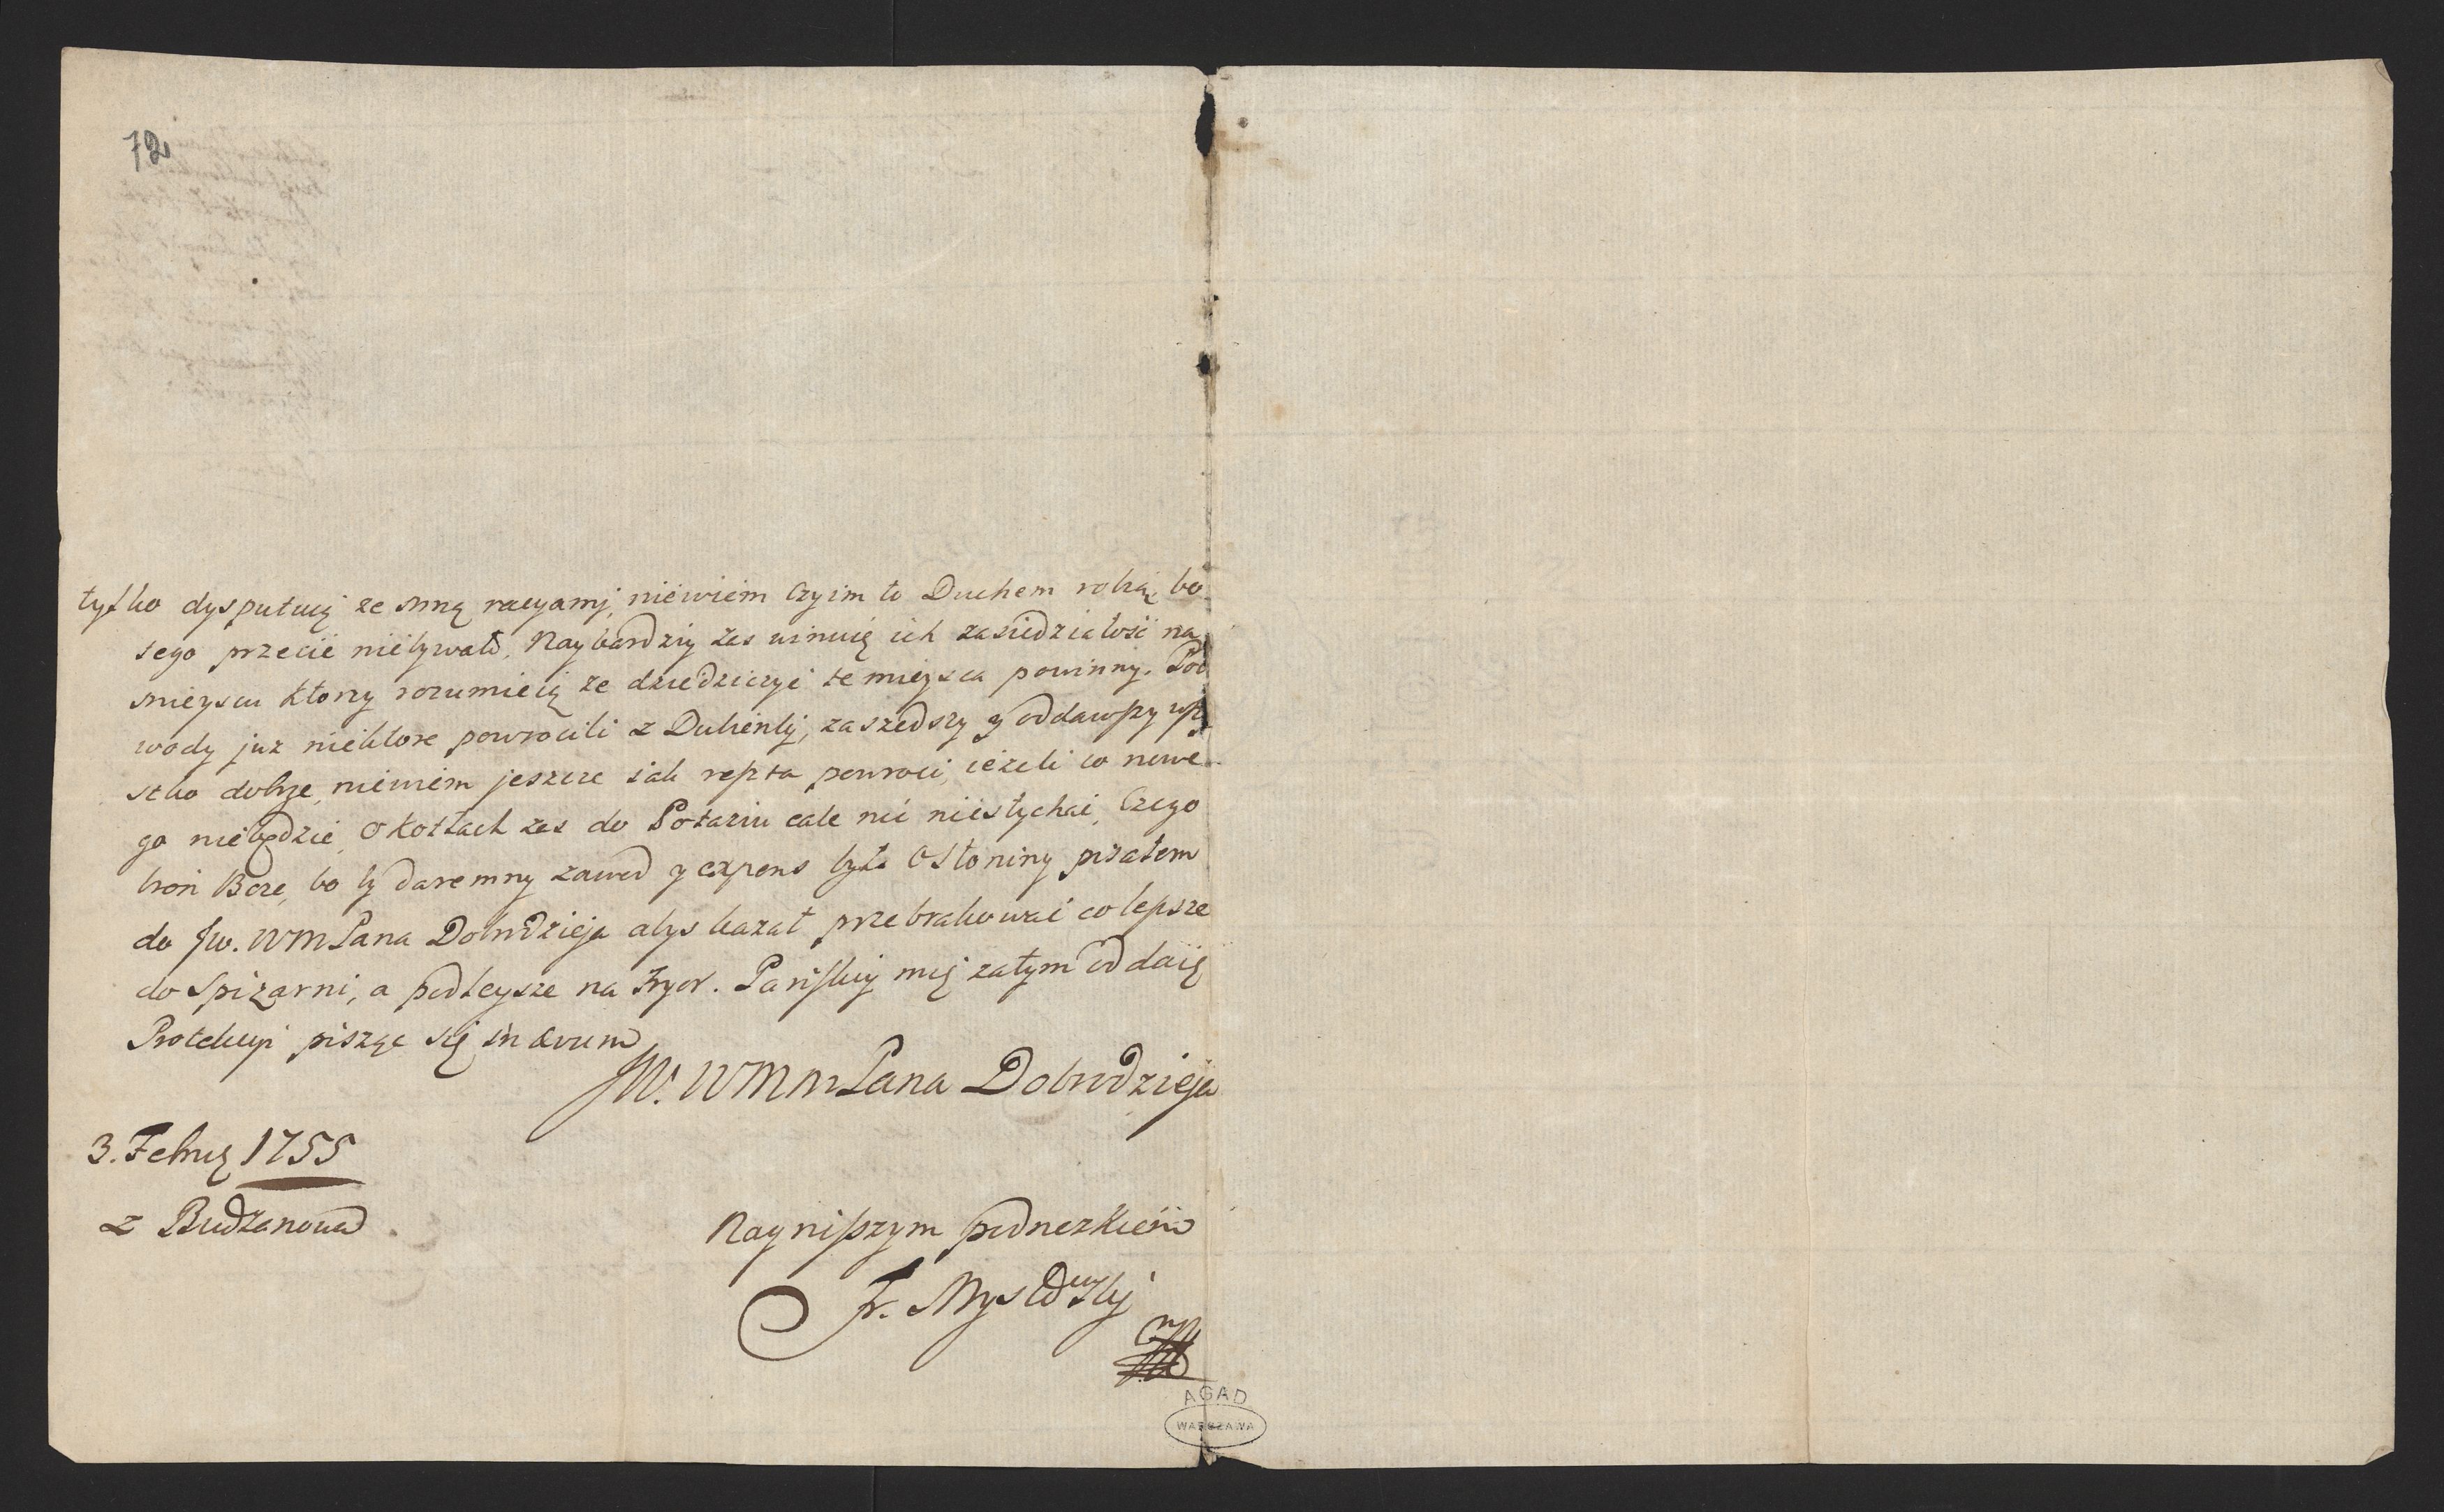 72
tylko dysputuią ze mną racyamj, niewiem Czyim to Duchem robią, bo
tego przecie niebywało. Naybardziy zas winuię ich zasiedziałość na
mieyscu ktorzy rozumieią że dziedziczyć te mieysca powinny. Pod
wody juz niektore powrociłi z Dubienki, zaszedszy y oddawszy wszy
stko dobrze, niewiem jeszcze jak reszta powroci, ieżeli co nowe
go niebędzie, O Kotłach zas do Potaziu cale nic niesłychać, Czego
broń Boże, bo by daremny zawod y expens była O Słoniny pisałem
do JW. WM Pana Dobrodzieja abys kazał przebrakować co lepsze
do Spiżarni, a podleysze na Fryor. Pańskiy mię zatym oddaię
Protekcyi pisząc się in ævum
JW. WMM Pana Dobrodzieja
3. Febru 1755
z Budzanowa
Nayniższym podnozkiem
Fr.
AGAD
WARSZAWA